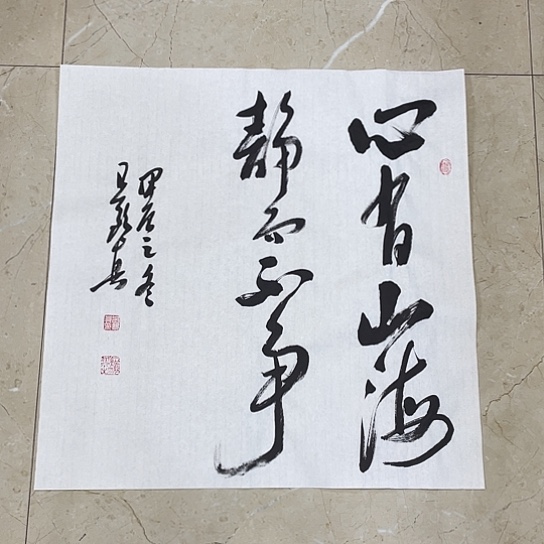 心有山海
静而不争
甲辰之冬